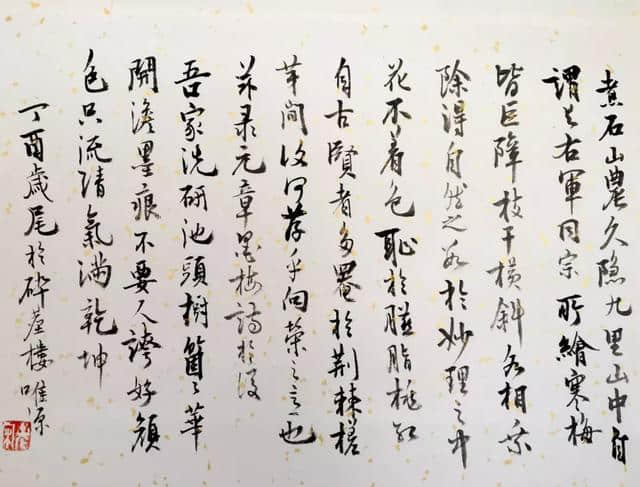 煮石山農久隐九里山中自
謂与右軍同宗所繪寒梅
皆巨障枝干横斜各相乘
除得自然之數於妙理之中
花不着色恥於臙脂桃紅
自古賢者多罨於荆棘榛
芋间汶何荐乎向榮之言也
茲录元章墨梅詩於後
吾家洗研池頭樹箇々華
開澹墨痕不要人誇好顔
色只流清氣滿乾坤
丁酉歲尾於碎墨樓唯涼